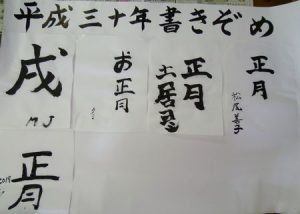 平成三十年書きぞめ
正月
松尾善子
正月
土居
お正月
戌
MJ
正月
2018